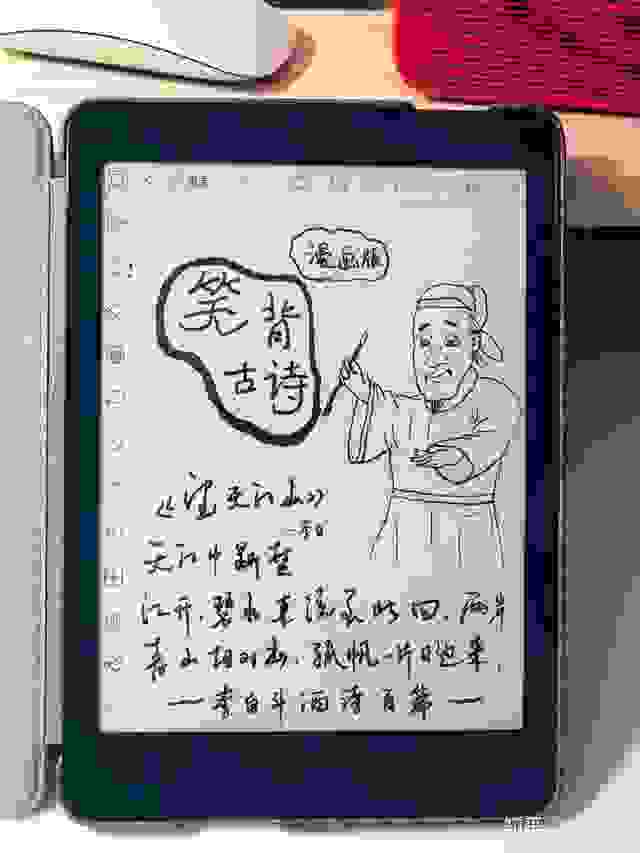 漫画版
笑背
古诗
《望天门山》
—李白
天门中断楚
江开，碧水东流至此回，两岸
青山相对出，孤帆一片日边来。
——李白斗酒诗百篇——